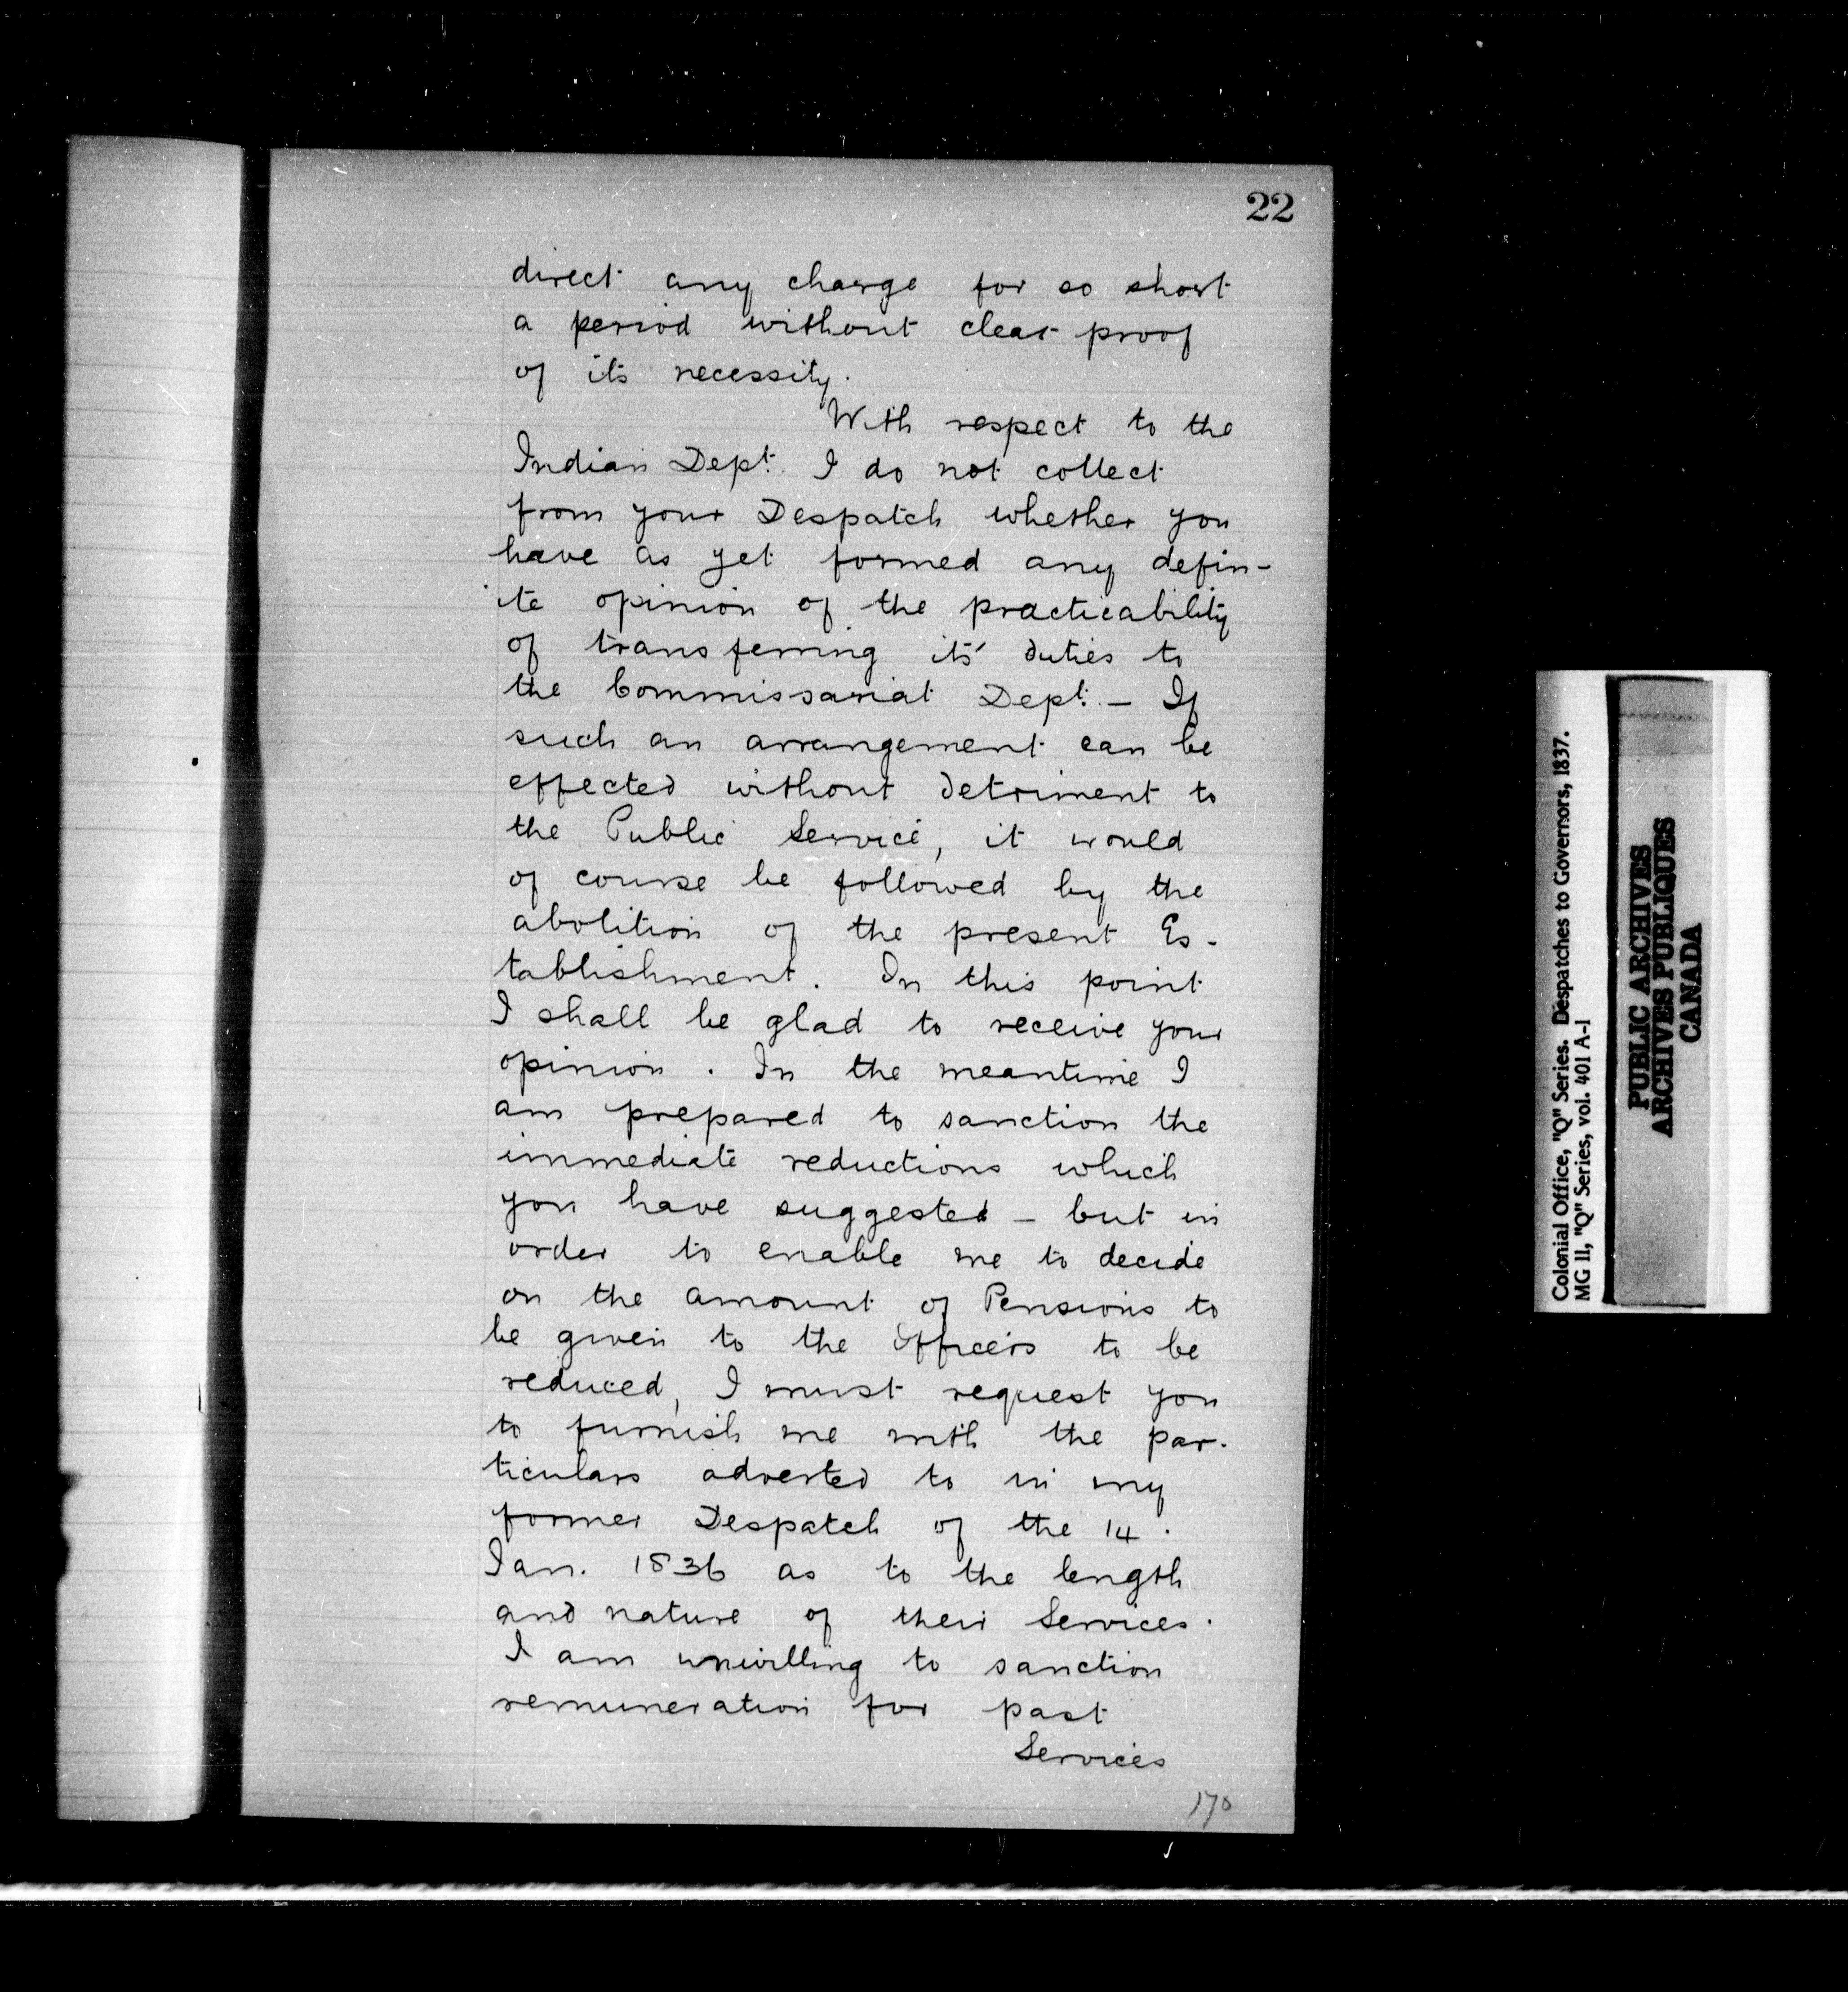 22
direct any charge for so short
a period without clear proof
of its necessity.
With respect to the
Indian Dept. I do not collect
from your Despatch whether you
have as yet formed any defin-
ite opinion of the practicability
of transferring its duties to
the Commissariat Dept. - If
such an arrangement can be
effected without detriment to
the Public Service, it would
of course be followed by the
abolition of the present Es-
tablishment. In this point
I shall be glad to receive your
opinion. In the meantime I
am prepared to sanction the
immediate reductions which
you have suggested - but in
order to enable me to decide
on the amount of Pensions to
be given to the Officers to be
reduced, I must request you
to furnish me with the par-
ticulars adverted to in my
former Despatch of the 14.
Jan. 1836 as to the length
and nature of their Services.
I am unwilling to sanction
remuneration for past
Services
170
Colonial Office, "Q" Series. Despatches to Governors, 1837.
MG 11, "Q" Series, vol. 401 A-1
PUBLIC ARCHIVES
ARCHIVES PUBLIQUES
CANADA